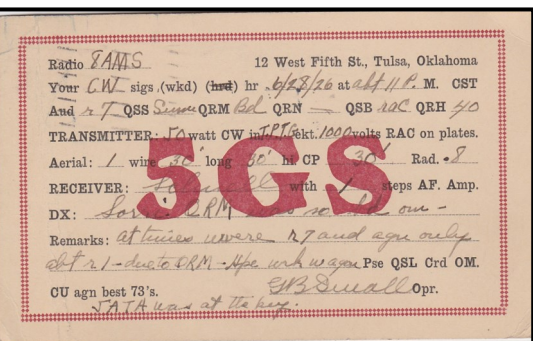 Radio 8AMS 12 West Fifth St., Tulsa, Oklahoma
Your CW sigs (wkd) (hrd) hr 6/28/26 at abt 11 P. M. CST
And r7 QSS QRM Bd QRN — QSB rac QRH 40
TRANSMITTER: 50 watt CW in T.P.T.G. ckt. 1000 volts RAC on plates.
Aerial: 1 wire 30' long 30' hi CP 30' Rad. .8
RECEIVER: with 1 steps AF. Amp.
5GS
DX: QRM so om -
Remarks: at times u were r7 and agn only
abt r1 - due to QRM - Hpe wrk u agn Pse QSL Crd OM.
CU agn best 73's. GB Small Opr.
5ATA was at the key.